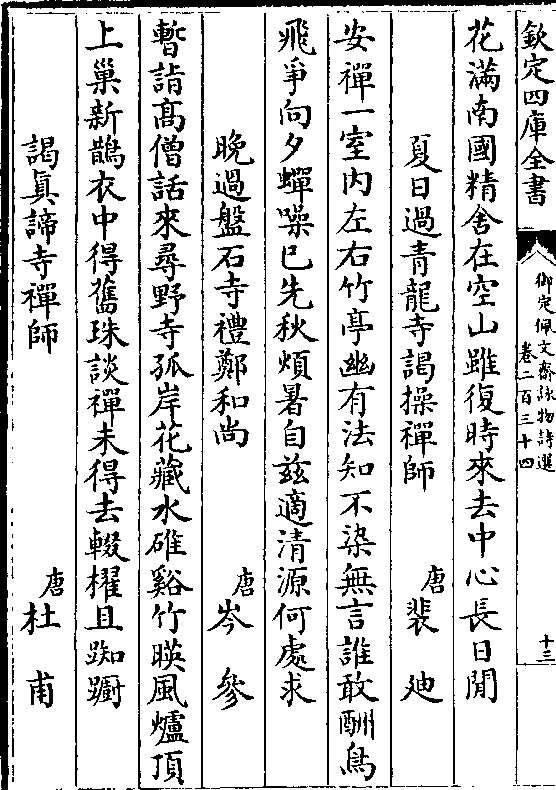 欽定四庫全書
御定佩文齋詠物詩選
卷二百三十四
十三
花滿南國精舍在空山雖復時來去中心長日閒
夏日過青龍寺謁操禪師
唐裴迪
安禪一室内左右竹亭幽有法知不染無言誰敢酬鳥
飛爭向夕蟬噪已先秋煩暑自兹適清源何處求
晚過盤石寺禮鄭和尚
唐岑參
暫詣髙僧話來尋野寺孤岸花藏水碓谿竹暎風爐頂
上巢新鵲衣中得舊珠談禪未得去輟櫂且踟躕
謁真諦寺禪師
唐杜甫